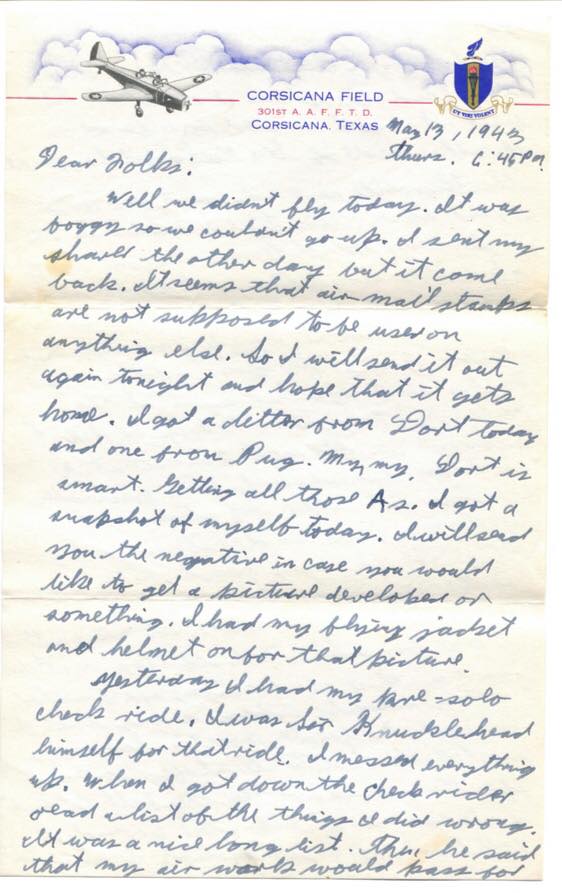 CORSICANA FIELD
301ST A. A. F. F. T. D.
CORSICANA, TEXAS
UT VIRI VOLENT
May 13, 1943
Thurs. 6:45 P.M.
Dear Folks:
Well we didn't fly today. It was
foggy so we couldn't go up. I sent my
the other day but it came
back. It seems that air-mail stamps
are not supposed to be used on
anything else. So I will send it out
again tonight and hope that it gets
home. I got a letter from Dort today
and one from Pug. My, my, Dort is
smart. Getting all those As. I got a
snapshot of myself today. I will send
you the negative in case you would
like to get a picture developed or
something. I had my flying jacket
and helmet on for that picture.
Yesterday I had my pre-solo
check ride. I was Sir Knucklehead
himself for that ride. I messed everything
up. When I got down the check rider
read a list of the things I did wrong.
It was a nice long list. Then he said
that my air work would pass for